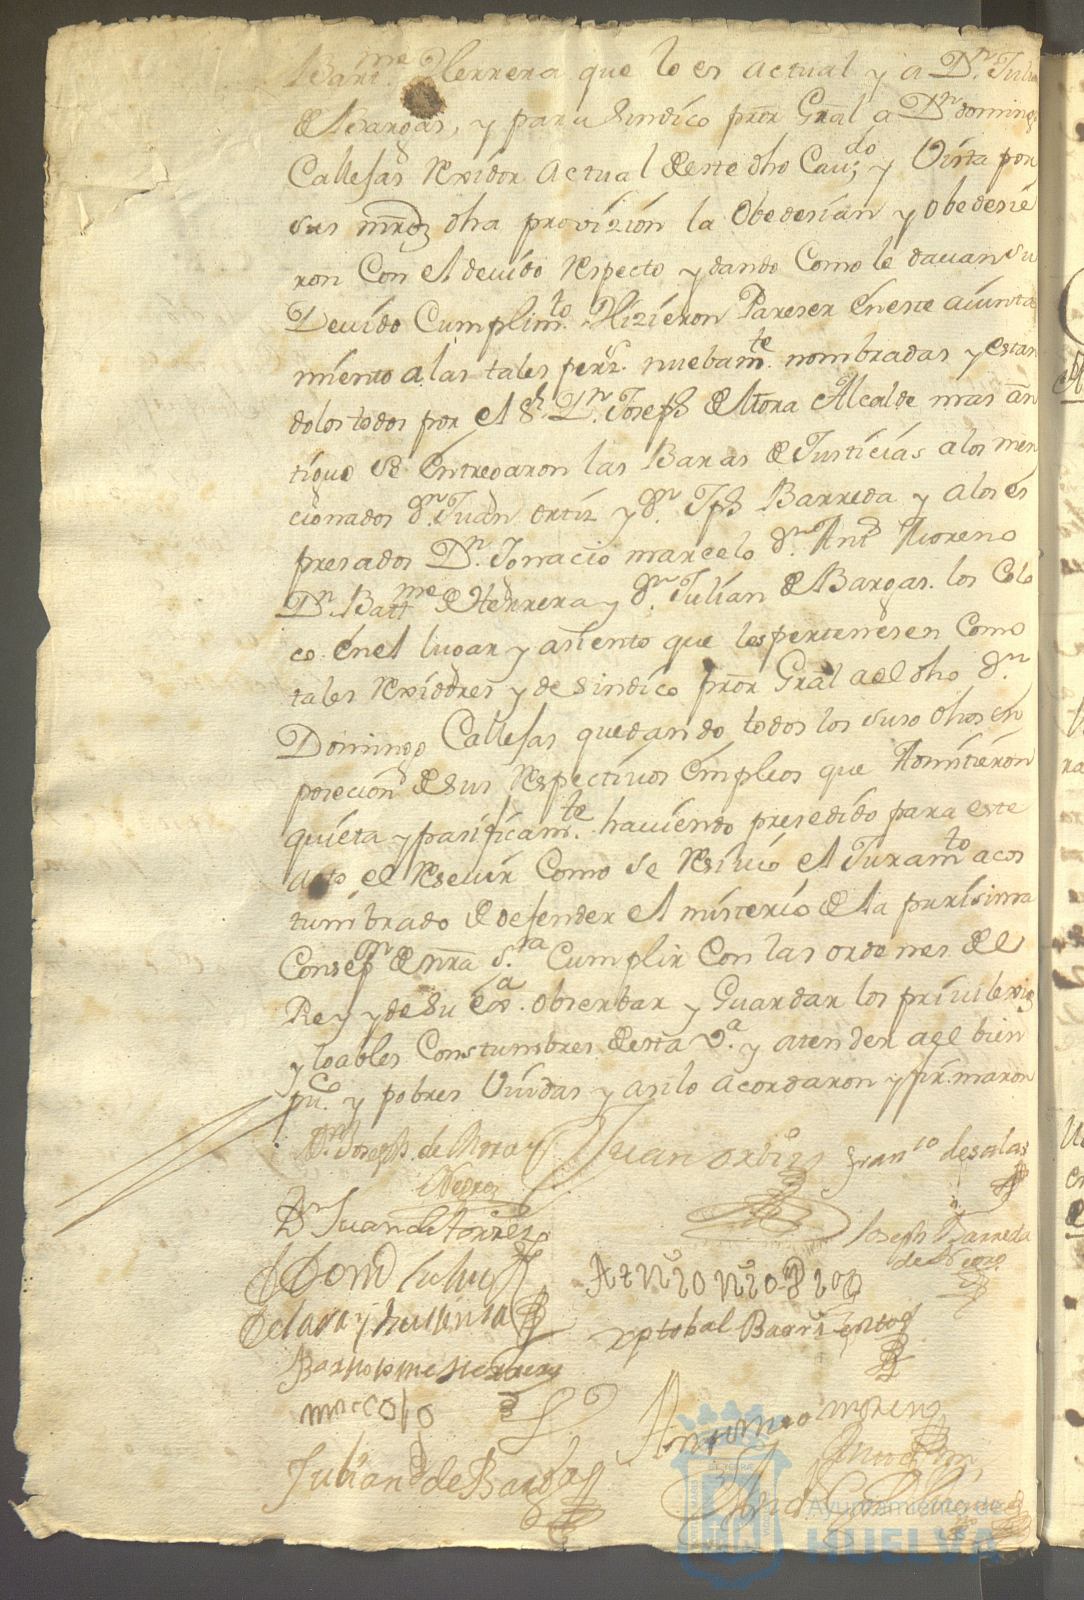 Bartme Herrera que lo es actual y a Dn Julian
de Bargas, y para Sindico pror Gral a Dn domingo
Callesas Rexidor actual de este dho Cavdo; y Vista por
sus mrds dha provizion la Obedesian y obedesie
ron Con el devido Respecto y dando Como le davan su
Devido Cumplimto. Hizieron Pareser en este aiunta
miento a las tales pers. nuebamte. nombradas y estan
dolos todos por el Sr. Dn. Joseph de Mora Alcalde mas an
tiguo se entregaron las Baras de Justicias a los men
cionados Dn. Juan ortiz y Dn. Jph Barreda y a los es
presados Dn. Ignacio marcelo Dn. Anto Moreno
Dn. Battme de Herrera y Dn. Julian de Bargas. los Colo
co. en el lugar y asiento que les pertenesen Como
tales Rexidores y de Sindico pror Gral a el dho Dn
Domingo Callesas quedando todos los suso dhos en
posecion de sus Respectivos empleos que Admitieron
quieta y pasificamte. haviendo presedido para este
acto el Resevir Como se Resivio el Juramto acos
tumbrado de defender el misterio de la purisima
Consepn de nra Sra. Cumplir Con las ordenes de el
Rey y de Su Exa. obserbar y Guardar los privilexios
y loables Constumbres de esta Va. y atender a el bien
puco. y pobres Viudas y asi lo acordaron y firmaron
Dn Joseph de Mora y
Negron
Juan ortiz
Franco de salas
Dn Juan de torres
Joseph Barreda
de
Antonio
Xptobal Barrientos
Bartholome Herrera
marcelo
Antonio moreno
Julian de Bargas
Ayuntamiento de
HUELVA